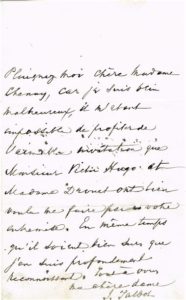 Plaignez moi chère Madame
Chenay, car je suis bien
malheureux, il m'étant
impossible de profiter de
l'aimable invitation que
Monsieur Victor Hugo et
Madame Drouet ont bien
voulu me faire par votre
entremise. En même temps
qu'ils soient bien sûrs que
j'en suis profondément
reconnaissant. Tout à vous
ma chère dame
J. Talbot